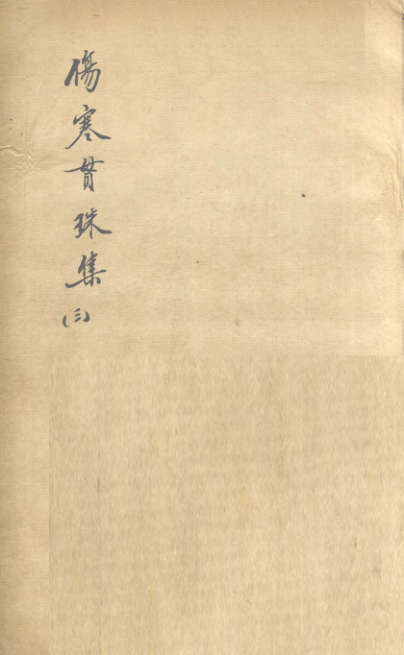 傷寒貫珠集(三)